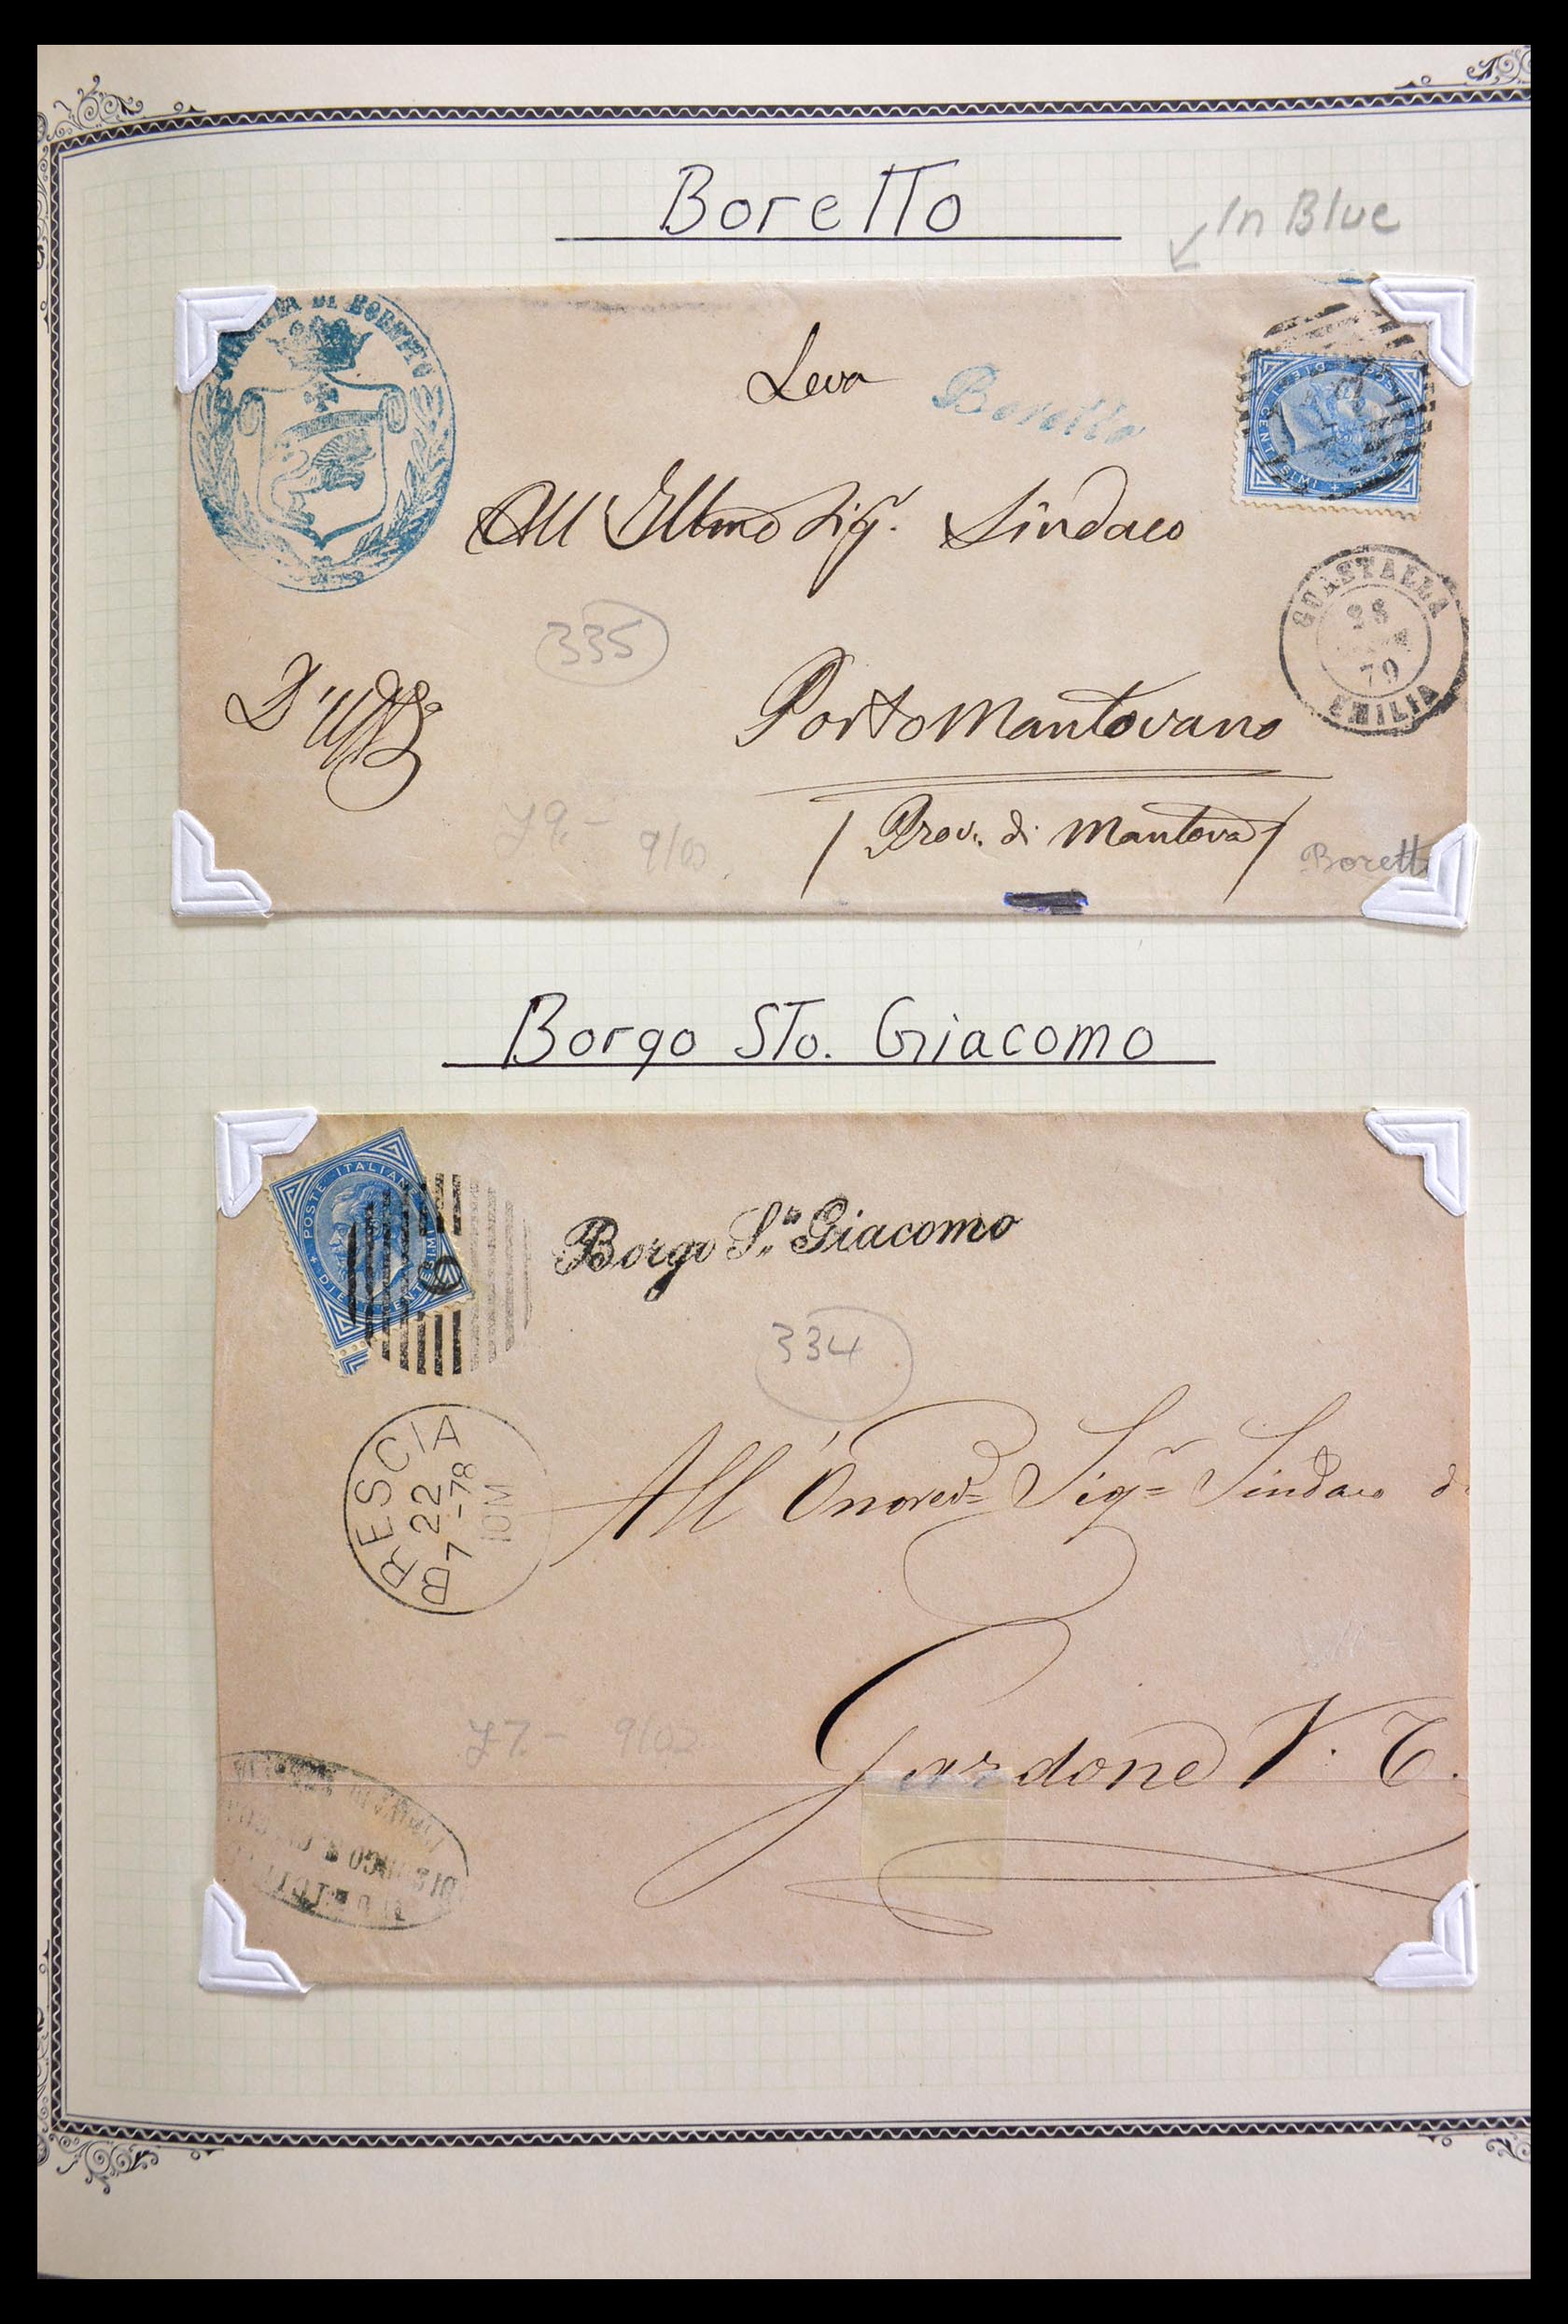 Boretto
In Blue
DI BORETTO
Leva
Boretto
POSTE DIECI CENTESIMI
All Illmo Sigr. Sindaco
335
GUASTALLA
28
79
EMILIA
D'uffo
Porto Mantovano
/ Prov. di Mantova /
9/00
Borett
Borgo STo. Giacomo
POSTE ITALIANE
DIECI CENTESIMI
Borgo Sn. Giacomo
334
BRESCIA
22
7 -78
10M
All' Onorev= Sigr= Sindaco d
Gardone V. T.
9/02
DI BORGO S. GIACOMO